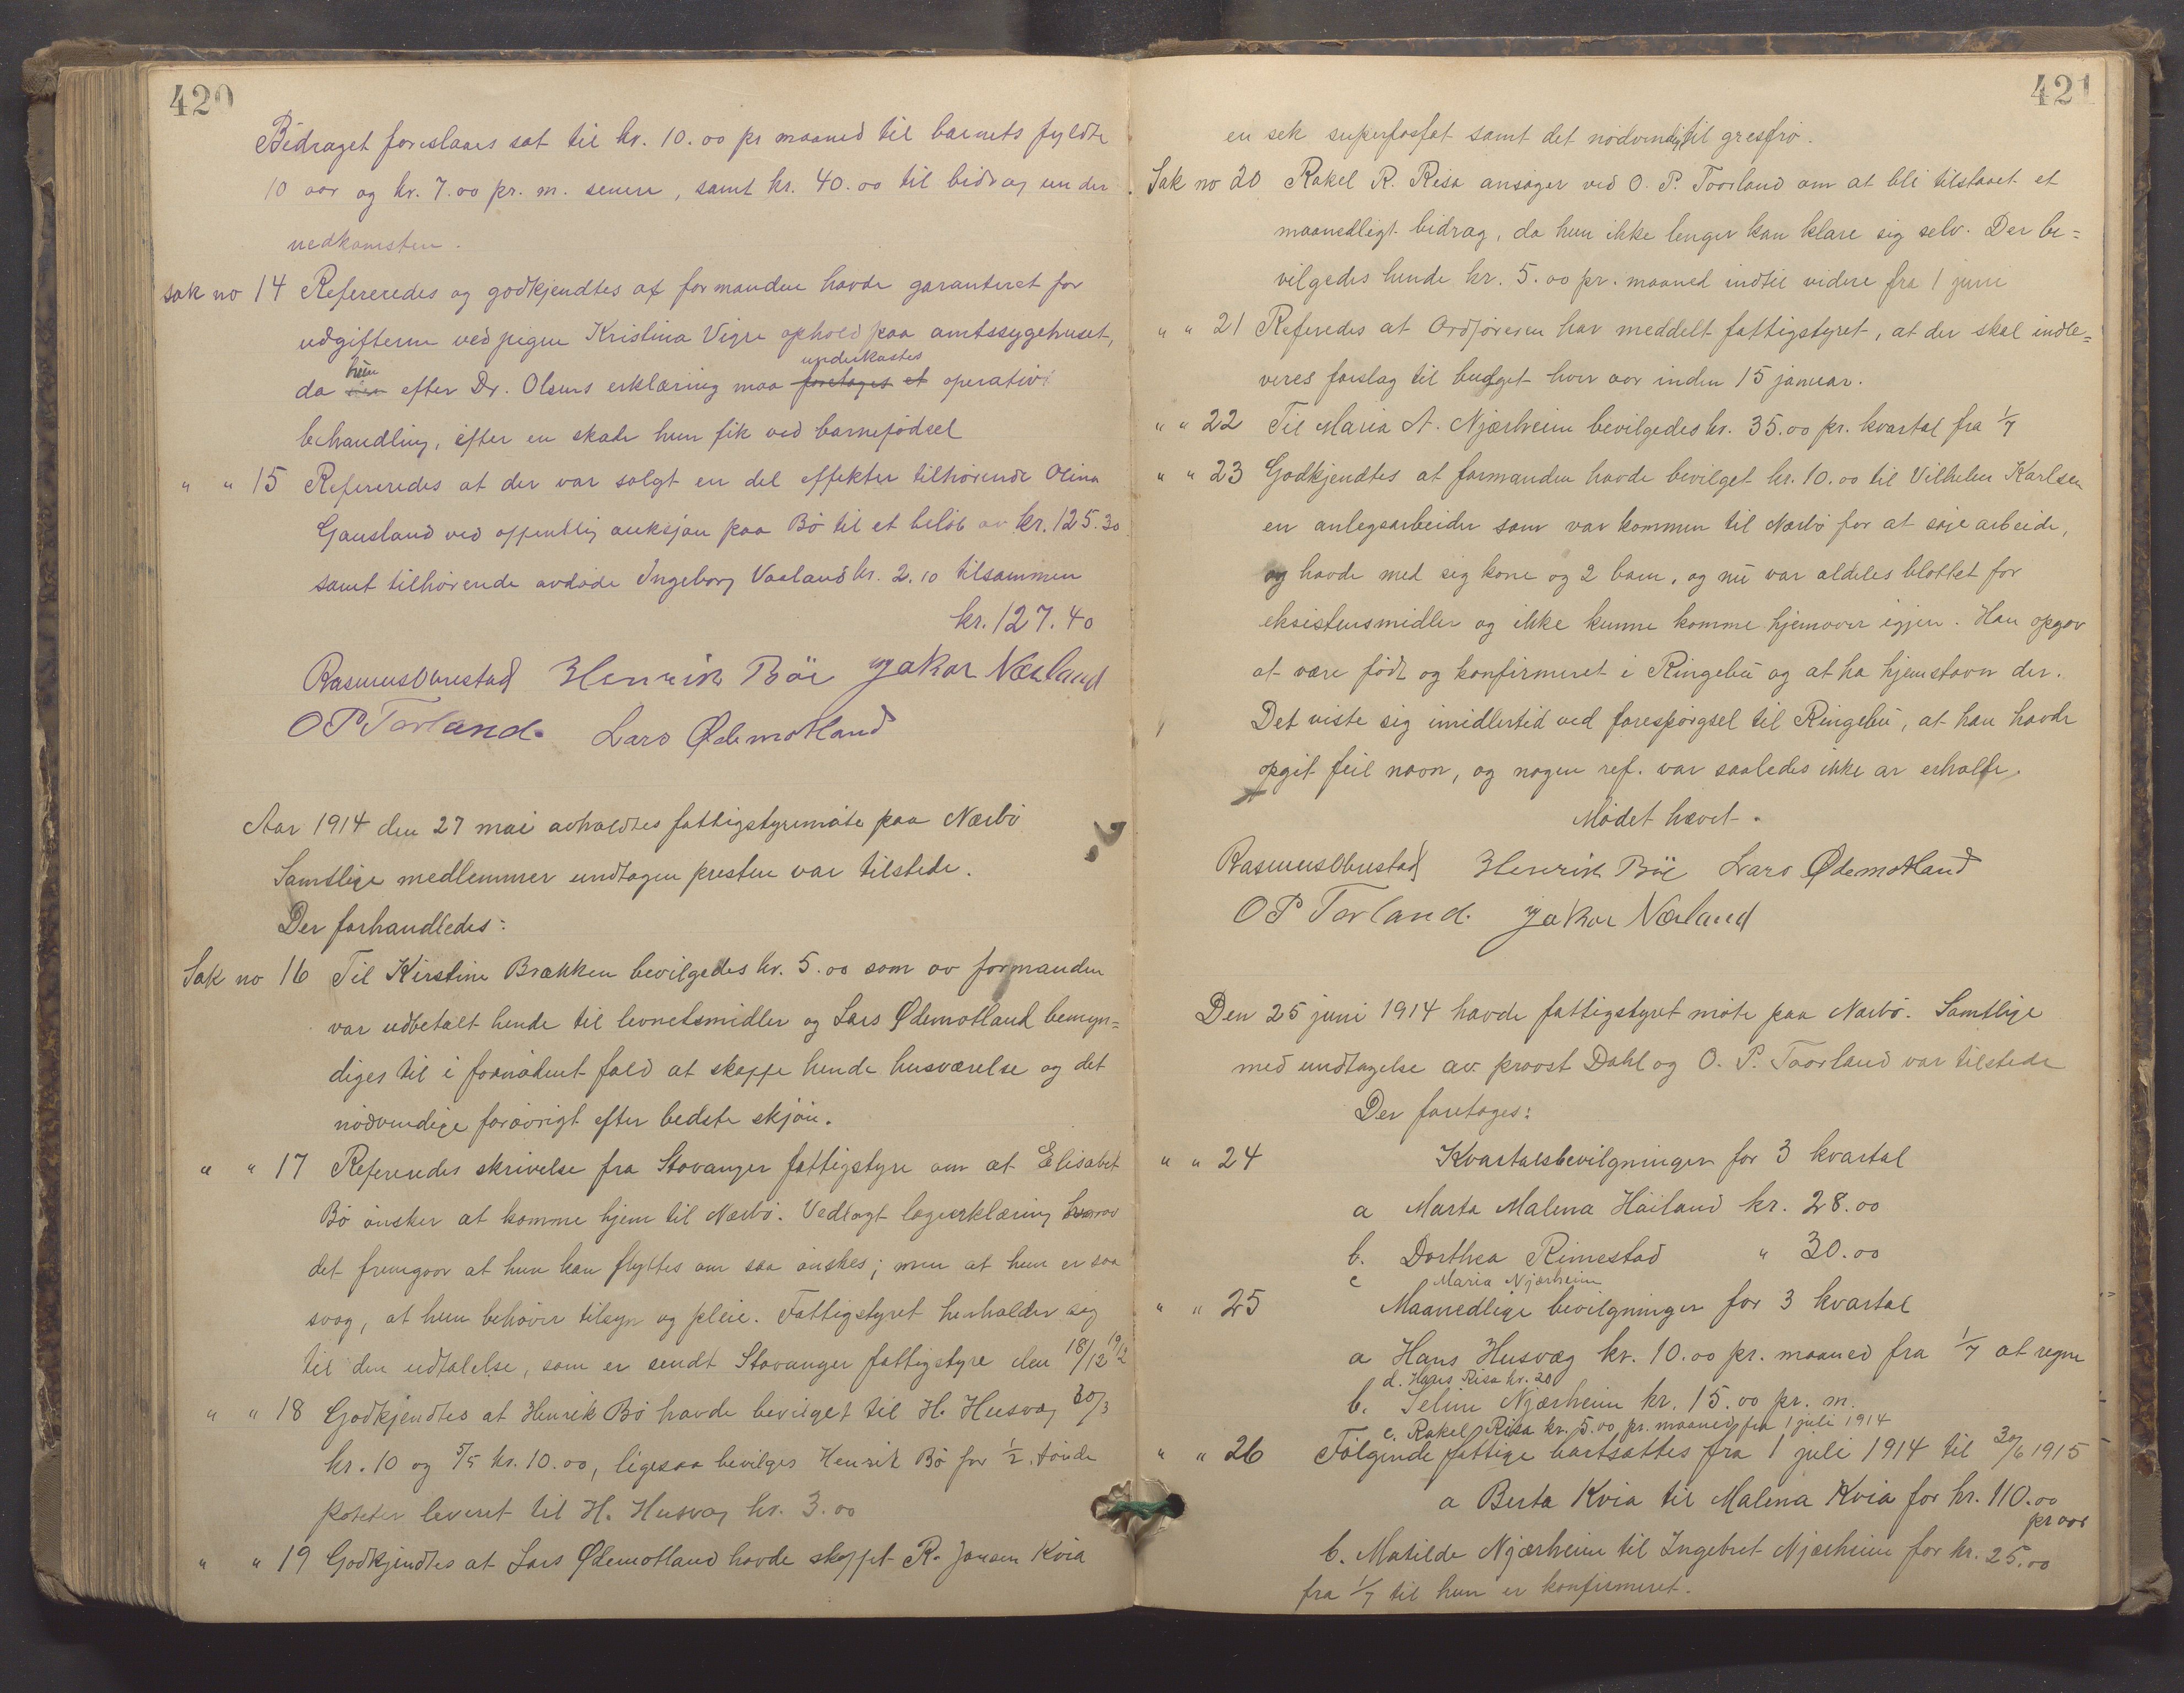 420
Bidraget foreslaaes sat til kr. 10.00 pr maaned til barnets fyldte
10 aar og kr. 7.00 pr. m. senere, samt kr. 40.00 til bidrag under
nedkomsten.
sak no 14 Refereredes og godkjendtes at formanden havde garanteret for
udgifterne ved pigen Kristina Vigre ophold paa amtssygehuset,
hun underkastes
da efter Dr. Olsens erklæring maa foretages et operativ
behandling, efter en skade hun fik ved barnefødsel
" " 15 Refereredes at der var solgt en del effekter tilhørende Olina
Gausland ved offentlig auksjon paa Bø til et beløb av kr. 125.30
samt tilhørende avdøde Ingeborg Vaaland kr. 2.10 tilsammen
kr. 127.40
Rasmus Obrestad Henrik Böe Jakob Nærland
O P Torland. Lars Ødemotland
Aar 1914 den 27 mai avholdtes fattigstyremøte paa Nærbø
Samtlige medlemmer undtagen presten var tilstede.
Der forhandledes:
Sak no 16 Til Kirstine Brækken bevilgedes kr. 5.00 som av formanden
var udbetalt hende til levnetsmidler og Lars Ødemotland bemyn=
diges til i fornødent fald at skaffe hende husværelse og det
nødvendige forøvrigt efter bedste skjøn.
" " 17 Refereredes skrivelse fra Stavanger fattigstyre om at Elisabet
Bø ønsker at komme hjem til Nærbø. Vedlagt lægeerklæring hvorav
det fremgaar at hun kan flyttes om saa ønskes; men at hun er saa
svag, at hun behøver tilsyn og pleie. Fattigstyret henholder sig
til den udtalelse, som er sendt Stavanger fattigstyre den 18/12 19/2
" " 18 Godkjendtes at Henrik Bø havde bevilget til H. Husvæg 30/3
kr. 10 og 5/5 kr. 10.00, ligesaa bevilges Henrik Bø for 1/2 tønde
poteter leveret til H. Husvæg kr. 3.00
" " 19 Godkjendtes at Lars Ødemotland havde skaffet R. Jonsen Kvia
421
en sek superfosfat samt det nødvendig til gresfrø.
Sak no 20 Rakel R. Risa ansøger ved O. P. Taarland om at bli tilstaaet et
maanedligt bidrag, da hun ikke lenger kan klare sig selv. Der be=
vilgedes hende kr. 5.00 pr. maaned indtil videre fra 1 juni
" " 21 Referedes at Ordføreren har meddelt fattigstyret, at der skal indle=
veres forslag til budget hver aar inden 15 januar.
" " 22 Til Maria A. Njærheim bevilgedes kr. 35.00 pr. kvartal fra 1/7
" " 23 Godkjendtes at formanden havde bevilget kr. 10.00 til Vilhelm Karlsen
en anlegsarbeider som var kommen til Nærbø for at søge arbeide,
og havde med sig kone og 2 barn, og nu var aldeles blottet for
eksistensmidler og ikke kunne komme hjemover igjen. Han opgav
at være født og konfirmeret i Ringebu og at ha hjemstavn der.
Det viste sig imidlertid ved forespørgsel til Ringebu, at han havde
opgit feil navn, og nogen ref. var saaledes ikke at erholde.
Mødet hævet.
Rasmus Obrestad Henrik Böe Lars Ødemotland
O P Torland. Jakob Nærland
Den 25 juni 1914 havde fattigstyret møte paa Nærbø. Samtlige
med undtagelse av provst Dahl og O. P. Taarland var tilstede
Der foretoges:
" " 24 Kvartalsbevilgninger for 3 kvartal
a Marta Malena Høiland kr. 28.00
b. Dorthea Rimestad " 30.00
c Maria Njærheim
" " 25 Maanedlige bevilgninger for 3 kvartal
a Hans Husvæg kr. 10.00 pr. maaned fra 1/7 at regne
d. Hans Risa kr. 20
b. Seline Njærheim kr. 15.00 pr. m.
c. Rakel Risa kr. 5.00 pr. maaned fra 1 juli 1914
" " 26 Følgende fattige bortsattes fra 1 juli 1914 til 30/6 1915
a Berta Kvia til Malena Kvia for kr. 110.00
pr aar
b. Matilde Njærheim til Ingebret Njærheim for kr. 25.00
fra 1/7 til hun er konfirmeret.